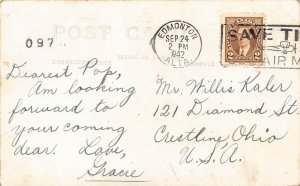 097
POST CARD
EDMONTON
SEP 24
2 PM
1942
ALTA
SAVE TI
AIR M
2
Dearest Pop,
Am looking
forward to
your coming
dear. Love,
Gracie
Mr. Willis Kaler
121 Diamond St.
Crestline, Ohio
U.S.A.